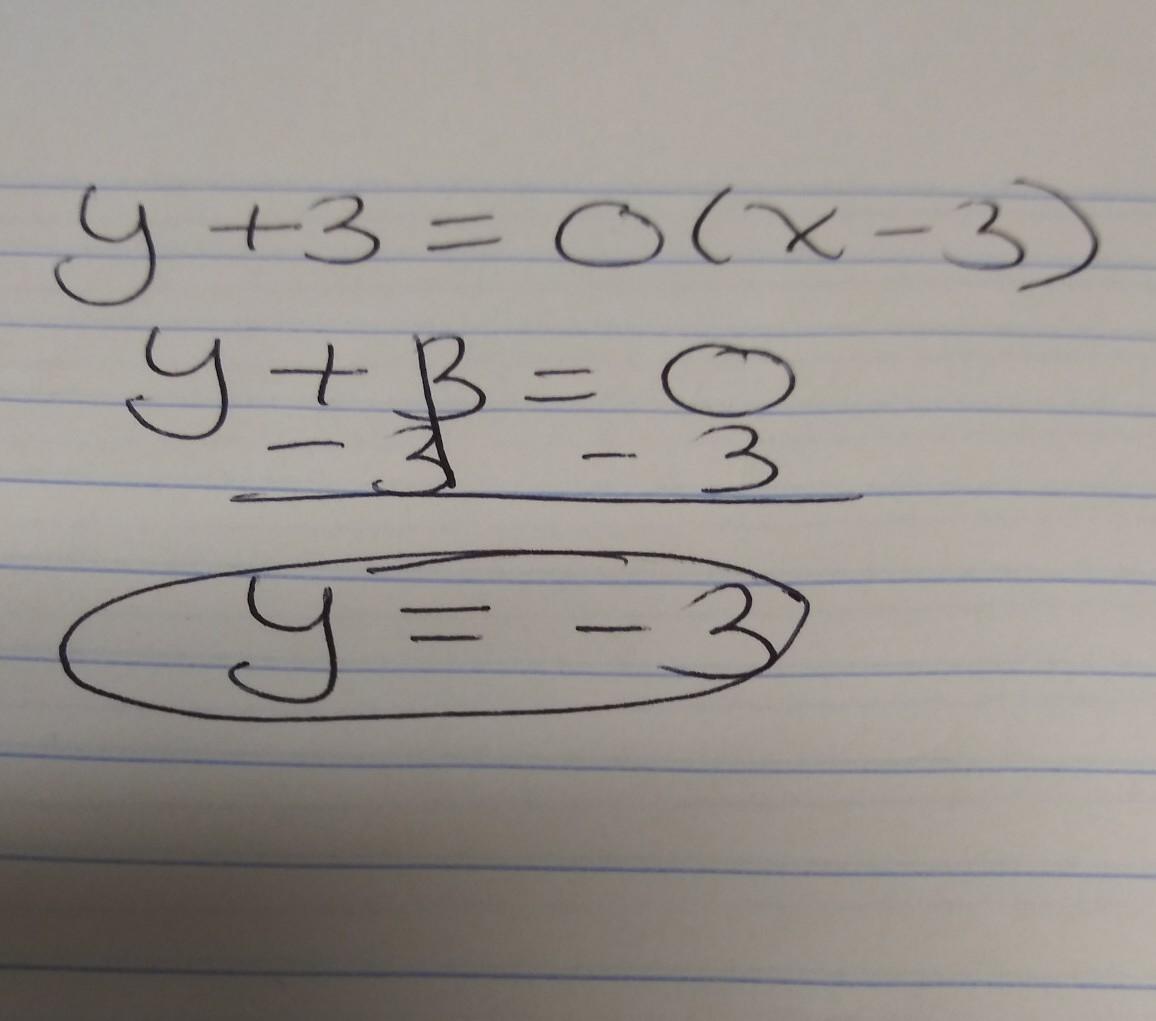 y + 3 = 0(x - 3)
y + 3 = 0
- 3 - 3
y = - 3